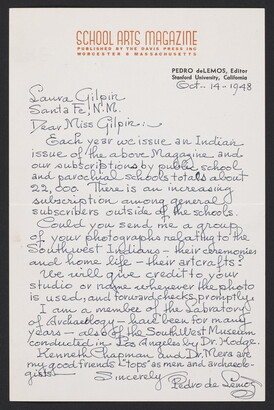 SCHOOL ARTS MAGAZINE
PUBLISHED BY THE DAVIS PRESS INC
WORCESTER 8 MASSACHUSETTS
PEDRO deLEMOS, Editor
Stanford University, California
Oct. 14 - 1948
Laura Gilpin
Santa Fe, N.M.
Dear Miss Gilpin:-
Each year we issue an Indian
issue of the above Magazine, and
our subscriptions by public school
and parochial schools totals about
22,000. There is an increasing
subscription among general
subscribers outside of the schools.
Could you send me a group
of your photographs relating to the
Southwest Indians - their ceremonies
and home life - their artcrafts?
We will give credit to your
studio or name whenever the photo
is used, and forward checks promptly.
I am a member of the Labratory
of Archaeology - have been for many
years - also of the Southwest Museum
conducted in Los Angeles by Dr. Hodge.
Kenneth Chapman and Dr. Mera are
my good friends & "tops" as men and archaeolo-
gists - Sincerely
Pedro de Lemos